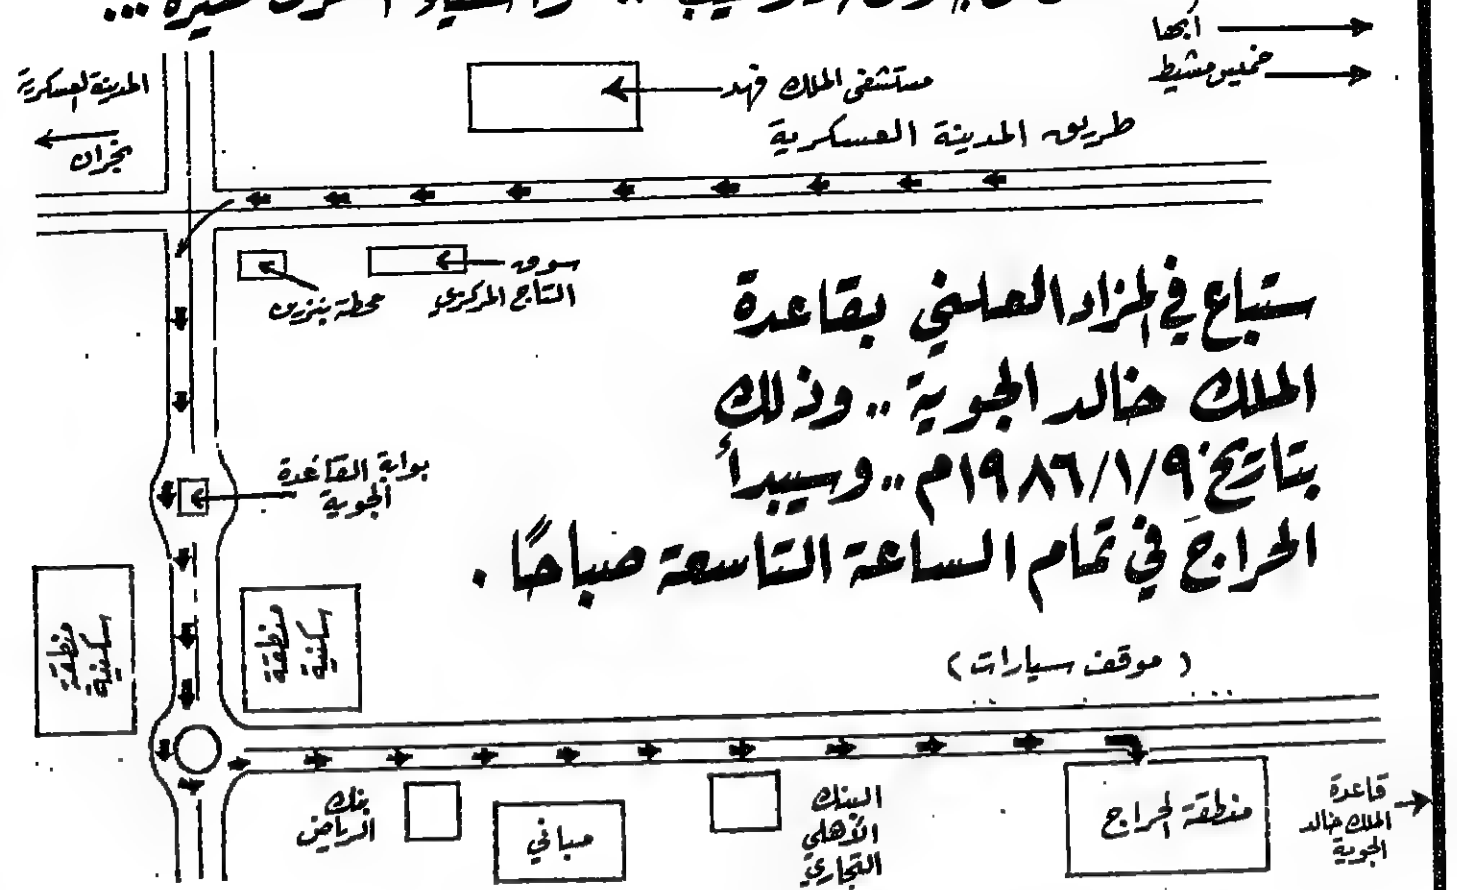 أبها
خميس مشيط
المدينة العسكرية
نجران
مستشفى الملك فهد
طريق المدينة العسكرية
سوق
التاج المركزي
محطة بنزين
ستباع في المزاد العلني بقاعدة
الملك خالد الجوية .. وذلك
بتاريخ ١٩٨٦/١/٩م .. وسيبدأ
الحراج في تمام الساعة التاسعة صباحًا .
بوابة القاعدة
الجوية
منطقة
سكنية
منطقة
سكنية
( موقف سيارات )
بنك
الرياض
مباني
البنك
الأهلي
التجاري
منطقة الحراج
قاعدة
الملك خالد
الجوية